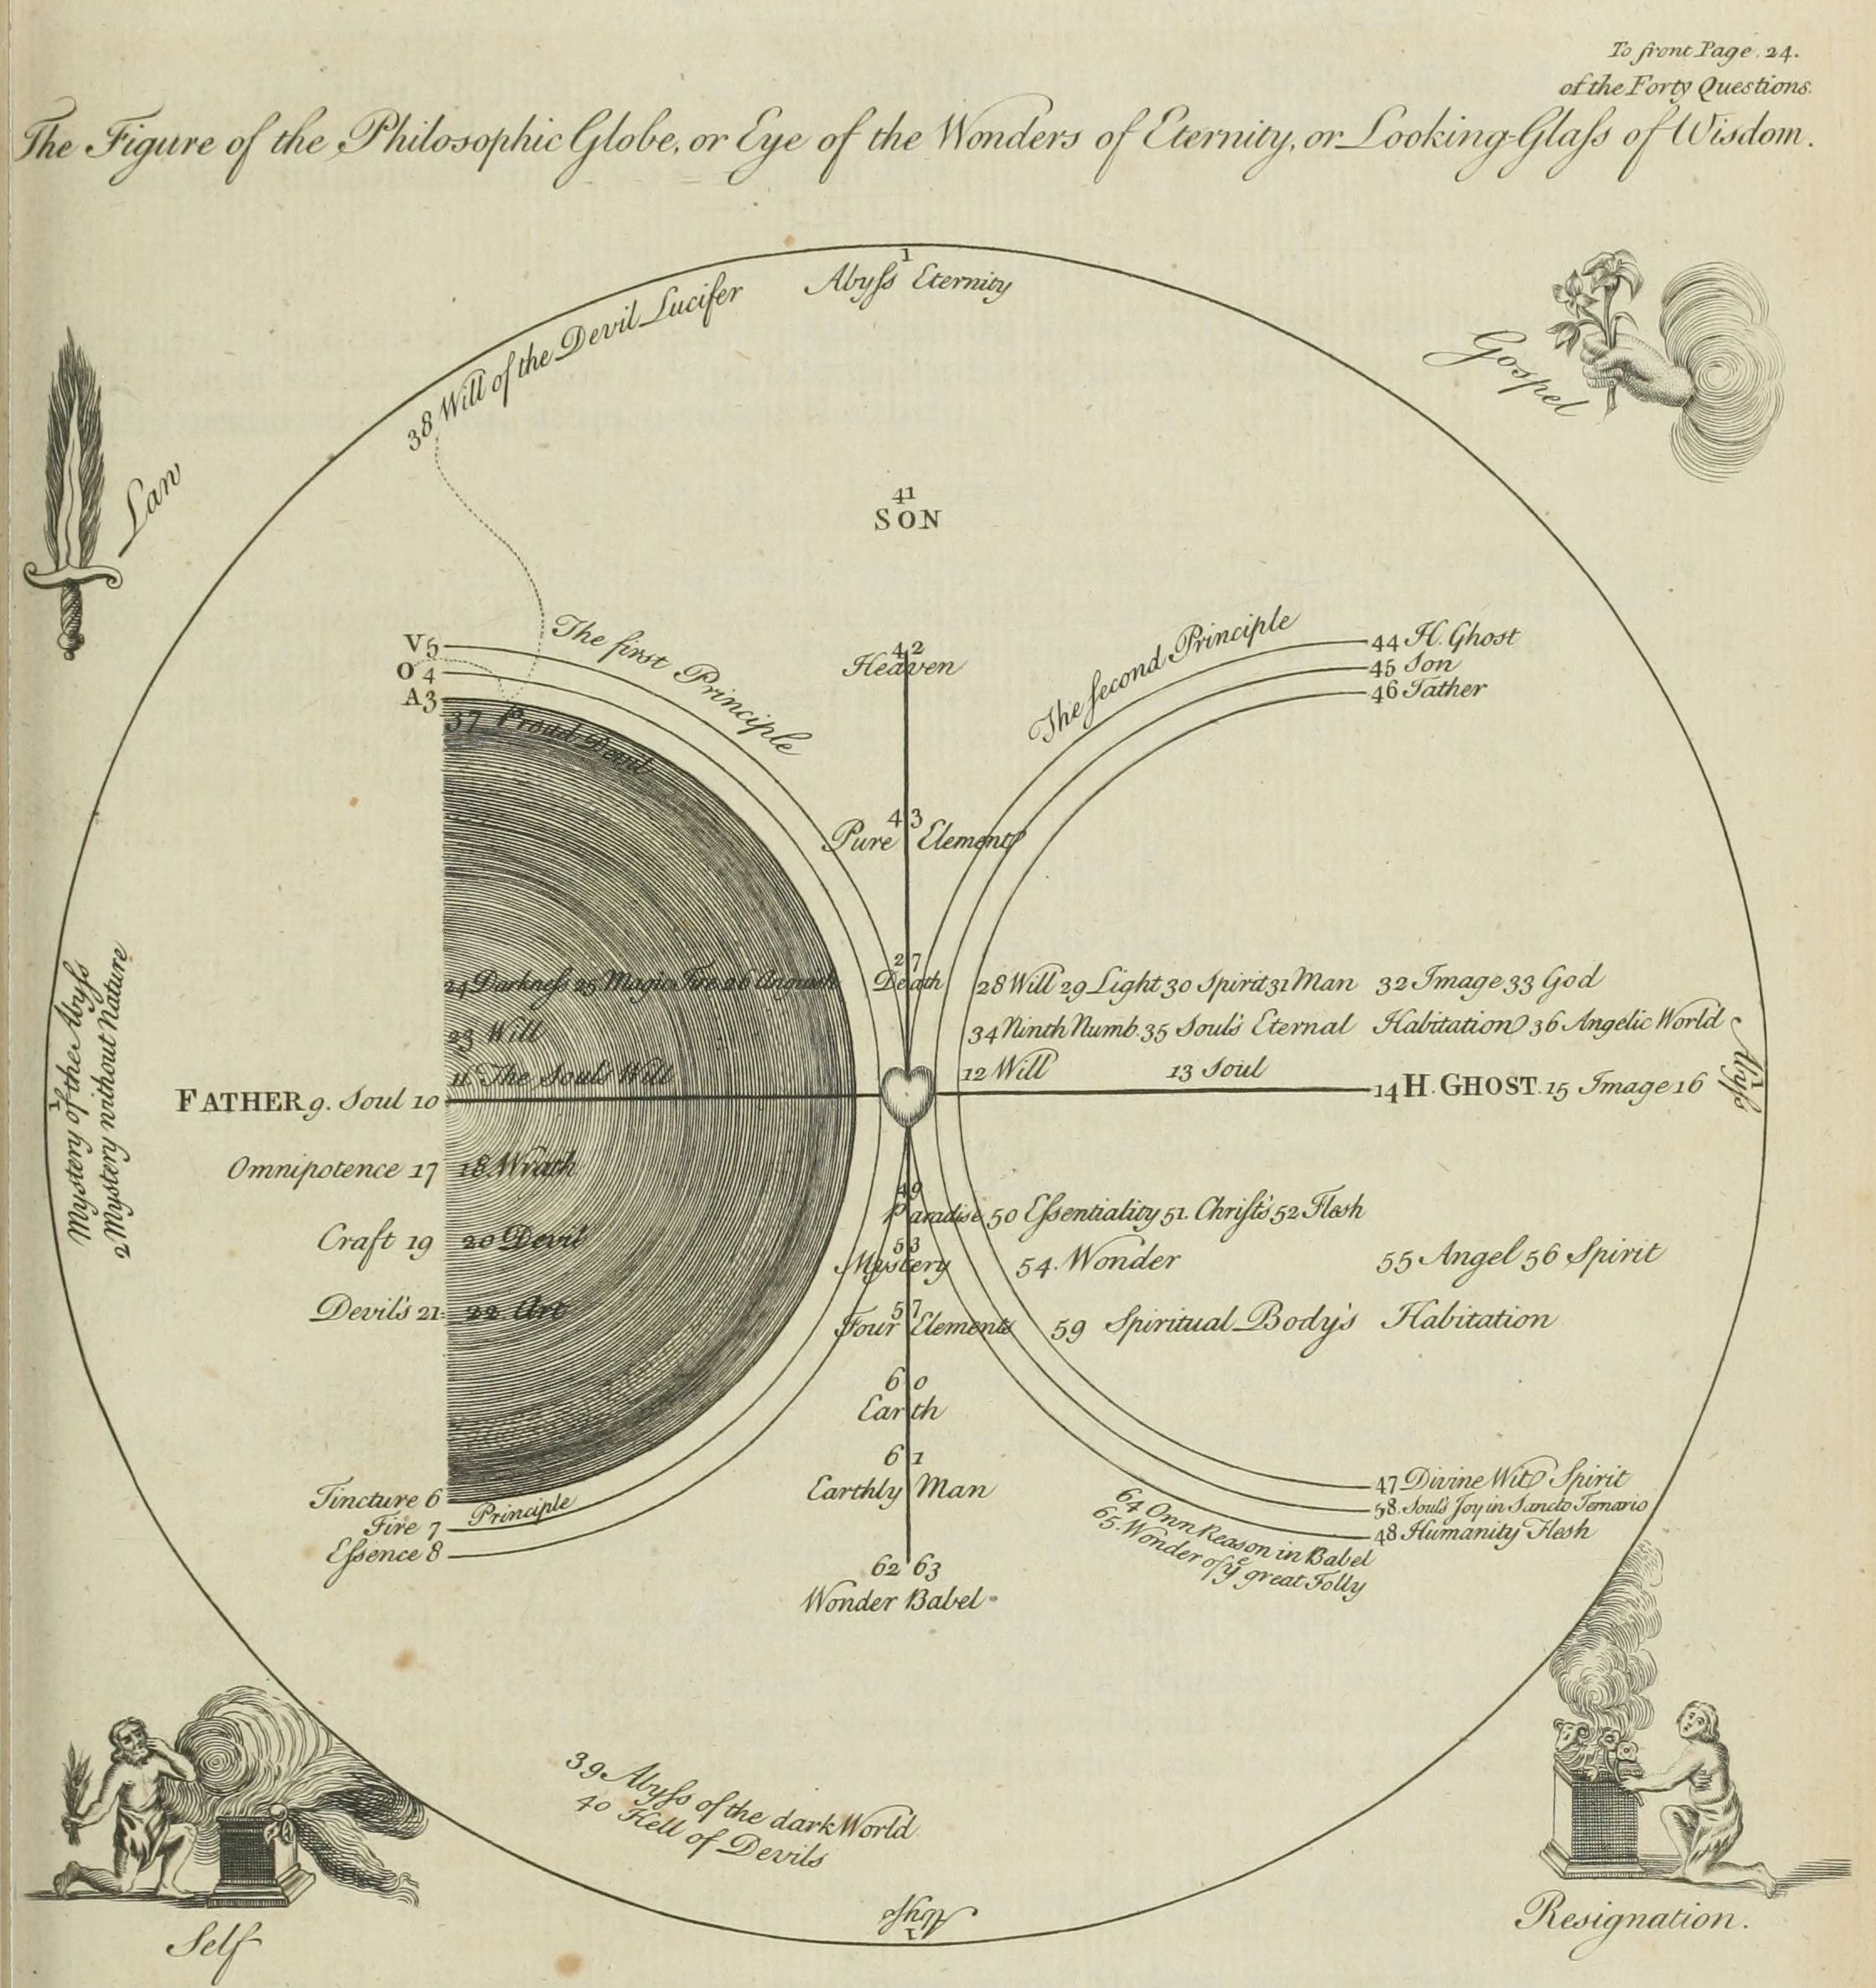 To front Page. 24.
of the Forty Questions.
The Figure of the Philosophic Globe, or Eye of the Wonders of Eternity, or Looking-Glaſs of Wisdom.
1
Abyſs Eternity
38 Will of the Devil Lucifer
Gospel
Law
41
SON
V5
O 4
A3
The first Principle
42
Heaven
The Second Principle
44 H. Ghost
45 Son
46 Father
37 Proud Devil
43
Pure Element
27
Death
24 Darkneſs 25 Magic Fire 26 Anguish
28 Will 29 Light 30 Spirit 31 Man 32 Image 33 God
23 Will
34 Ninth Numb. 35 Soul's Eternal Habitation 36 Angelic World
11 The Soul's Will
12 Will 13 Soul
FATHER 9. Soul 10
14 H. GHOST. 15 Image 16
1
Abyſs
1
Mystery of the Abyſs
2 Mystery without Nature
Omnipotence 17 18 Wrath
49
Paradise 50 Eſsentiality 51. Christ's 52 Flesh
Craft 19 20 Devil
53
Mystery 54. Wonder 55 Angel 56 Spirit
Devil's 21 22 Art
57
Four Elements 59 Spiritual Body's Habitation
60
Earth
61
Earthly Man
Tincture 6
Fire 7
Eſsence 8
Principle
47 Divine Wit Spirit
58. Soul's Joy in Sancto Ternario
48 Humanity Flesh
62 63
Wonder Babel
64 Own Reason in Babel
65. Wonder of yᵉ great Folly
39 Abyſs of the dark World
40 Hell of Devils
1
Abyſs
Self
Resignation.